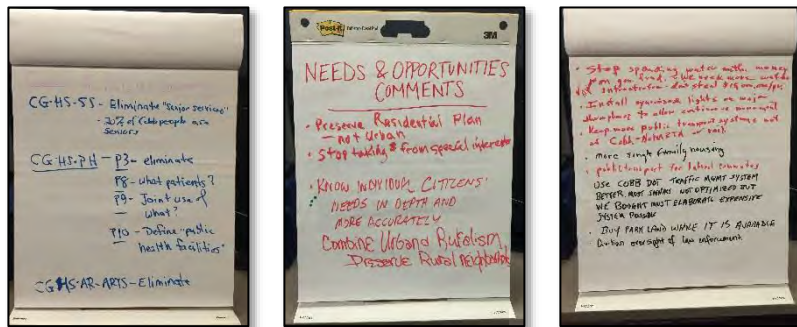 CG-HS-SS- Eliminate "senior services"
- 20% of Cobb people are
seniors
CG-HS-PH - P3 - eliminate
P8 - what patients?
P9 - Joint use of
what?
P10 - Define "public
health facilities"
CG-HS-AR-ARTS - Eliminate
Post-it
3M
NEEDS & OPPORTUNITIES
COMMENTS
• Preserve Residential Plan
- not Urban
• Stop taking $ from special interests
• KNOW INDIVIDUAL CITIZENS'
NEEDS IN DEPTH AND
MORE ACCURATELY
Combine Urban & Ruralism
Preserve Rural neighborhoods
• Stop spending water auth. money
from gen fund. - We need more water
infrastructure - don't steal
• Install synchronized lights on major
• Keep more public transport systems out
of Cobb - No MARTA or rail
• more single family housing
• public transport for
USE COBB DOT TRAFFIC MGMT SYSTEM
BETTER MOST SIGNALS NOT OPTIMIZED BUT
WE BOUGHT MOST ELABORATE EXPENSIVE
SYSTEM POSSIBLE
• BUY PARK LAND WHILE IT IS AVAILABLE
Civilian oversight of law enforcement